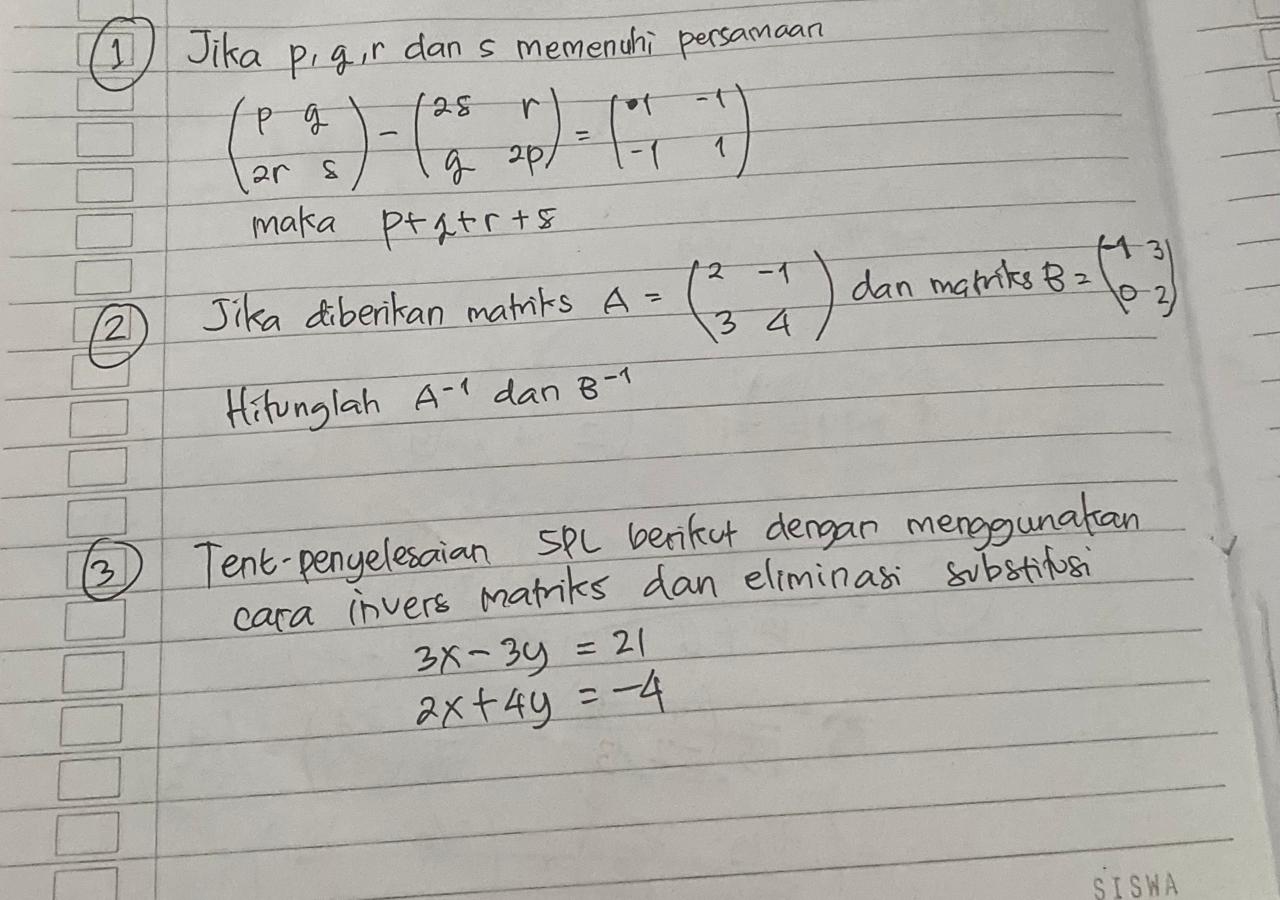 ① Jika p, q, r dan s memenuhi persamaan
(p q) - (2s r) = (1 -1)
(2r s) (q 2p) (-1 1)
maka p+q+r+s
② Jika diberikan matriks A = (2 -1) dan matriks B = (-1 3)
(3 4) (0 2)
Hitunglah A⁻¹ dan B⁻¹
③ Tent-penyelesaian SPL berikut dengan menggunakan
cara invers matriks dan eliminasi substitusi
3x - 3y = 21
2x + 4y = -4
SISWA